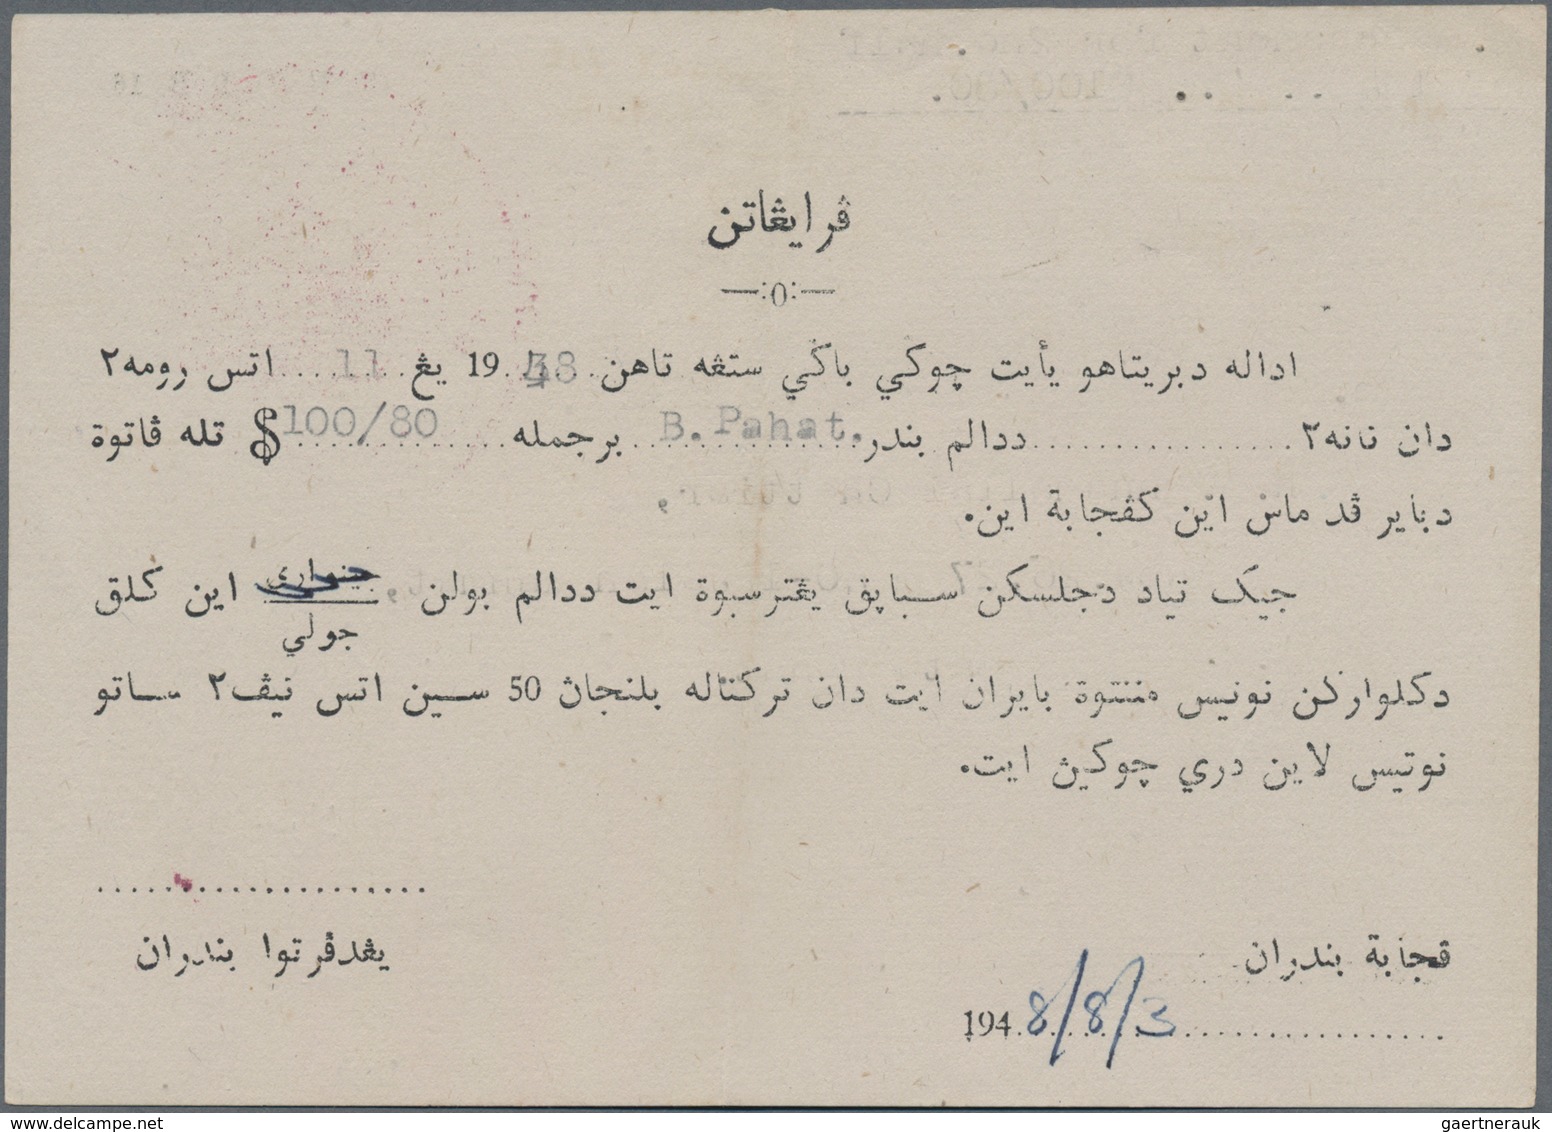 ڤرايڠاتن
—:0:—
اداله دبريتاهو يأيت چوكي باݢي ستڠه تاهن 1948 يڠ 11 اتس رومه٢
دان تانه٢ ددالم بندر B. Pahat. برجمله $ 100/80 تله ڤاتوة
دباير ڤد ماس اين كڤجابة اين.
جيک تياد دجلسکن اسباپق يڠترسبوة ايت ددالم بولن جنواري اين كلق
جولي
دكلواركن نوتيس مننتوة بايران ايت دان تركناله بلنجاڽ 50 سين اتس تيڤ٢ ساتو
نوتيس لاين دري چوكيڽ ايت.
يڠدڤرتوا بندران
ڤجابة بندران
1948/8/3
gaertnerauk / delcampe.net